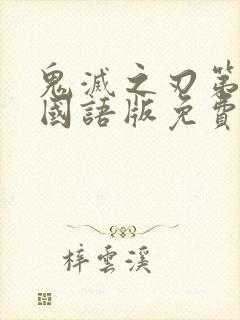 鬼滅之刃第
國語版免費
梓雲溪